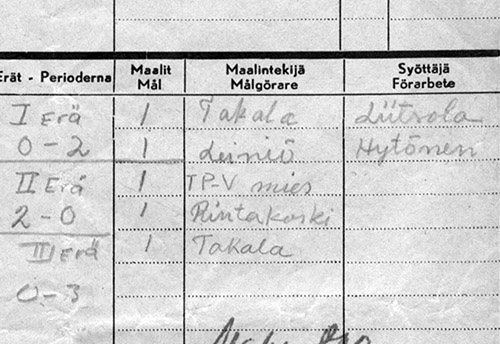 Erät - Perioderna Maalit Mål Maalintekijä Målgörare Syöttäjä Förarbete
I Erä 1 Takala Liitsola
0-2 1 Leiniö Hytönen
II Erä 1 TP-V mies
2-0 1 Rintakoski
III Erä 1 Takala
0-3